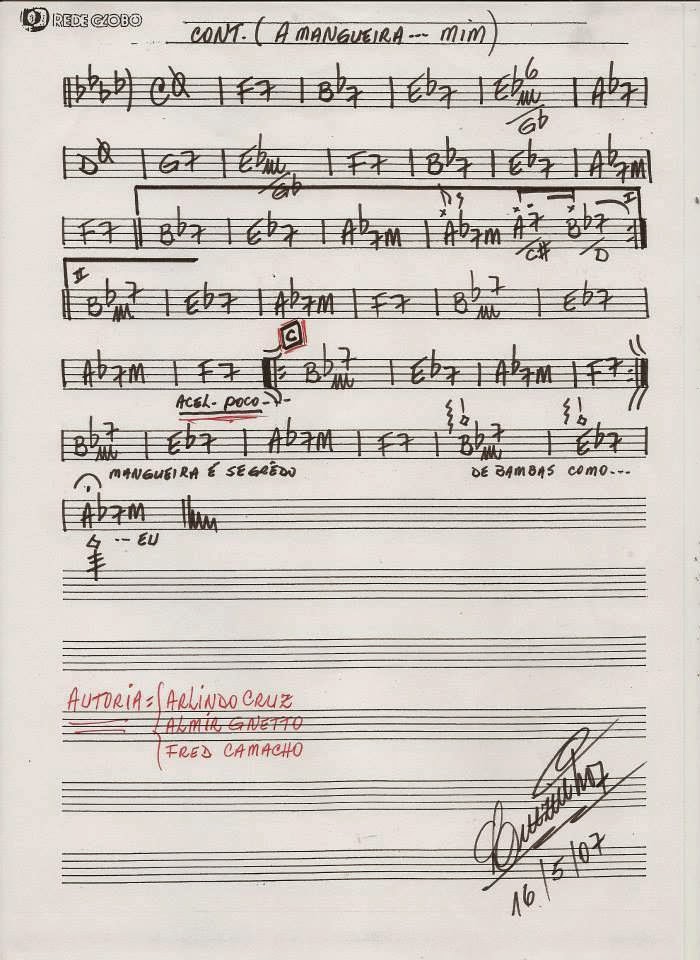 REDE GLOBO
CONT. ( A MANGUEIRA --- MIM)
CØ | F7 | Bb7 | Eb7 | Ebm6/Gb | Ab7 |
DØ | G7 | Ebm/Gb | F7 | Bb7 | Eb7 | Ab7M |
I
F7 || Bb7 | Eb7 | Ab7M | Ab7M A7/C# Bb7/D :||
II
Bbm7 | Eb7 | Ab7M | F7 | Bbm7 | Eb7 |
C
Ab7M | F7 ||: Bbm7 | Eb7 | Ab7M | F7 :||
ACEL- POCO - - -
Bbm7 | Eb7 | Ab7M | F7 | Bbm7 | Eb7 |
MANGUEIRA É SEGRÊDO DE BAMBAS COMO---
Ab7M
--- EU
AUTORIA = { ARLINDO CRUZ
ALMIR GNETTO
FRED CAMACHO
16/5/07